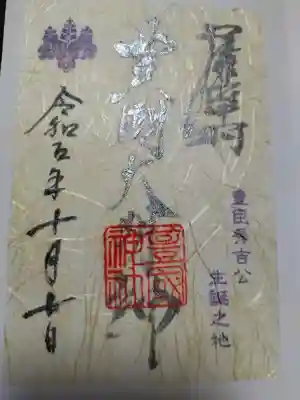 奉拝
豊臣秀吉公
生誕之地
豊國大明神
豊國神社
令和五年十月廿日